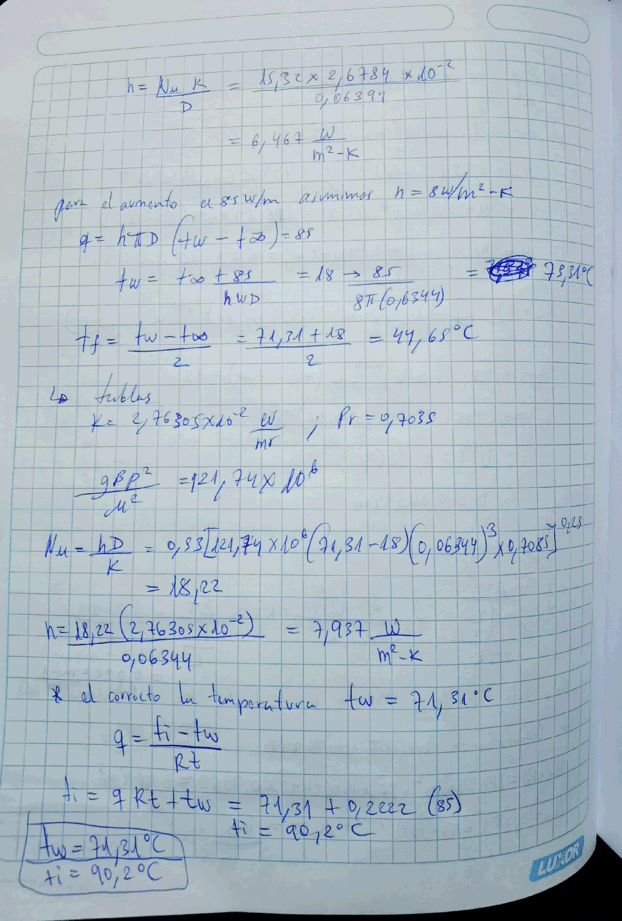 h = Nu K / D = 15,32 x 2,6784 x 10^-2 / 0,06394
= 6,467 W / m²-K
para el aumento a 85 W/m asumimos h = 8 W/m²-K
q = hπD (tw - t∞) = 85
tw = t∞ + 85 / hπD = 18 → 85 / 8π(0,6344) = 73,31°C
tf = tw - t∞ / 2 = 71,31 + 18 / 2 = 44,65°C
↳ tablas
K = 2,76305x10^-2 W / mK ; Pr = 0,7035
gβρ² / μ² = 121,74 x 10^6
Nu = hD / K = 0,53[121,74 x 10^6 (71,31 - 18)(0,06344)^3 x 0,7085]^0,25
= 18,22
h = 18,22 (2,76305x10^-2) / 0,06344 = 7,937 W / m²-K
* el correcto la temperatura tw = 71,31°C
q = ti - tw / Rt
ti = q Rt + tw = 71,31 + 0,2222 (85)
ti = 90,2°C
tw = 71,31°C
ti = 90,2°C
LUXOR